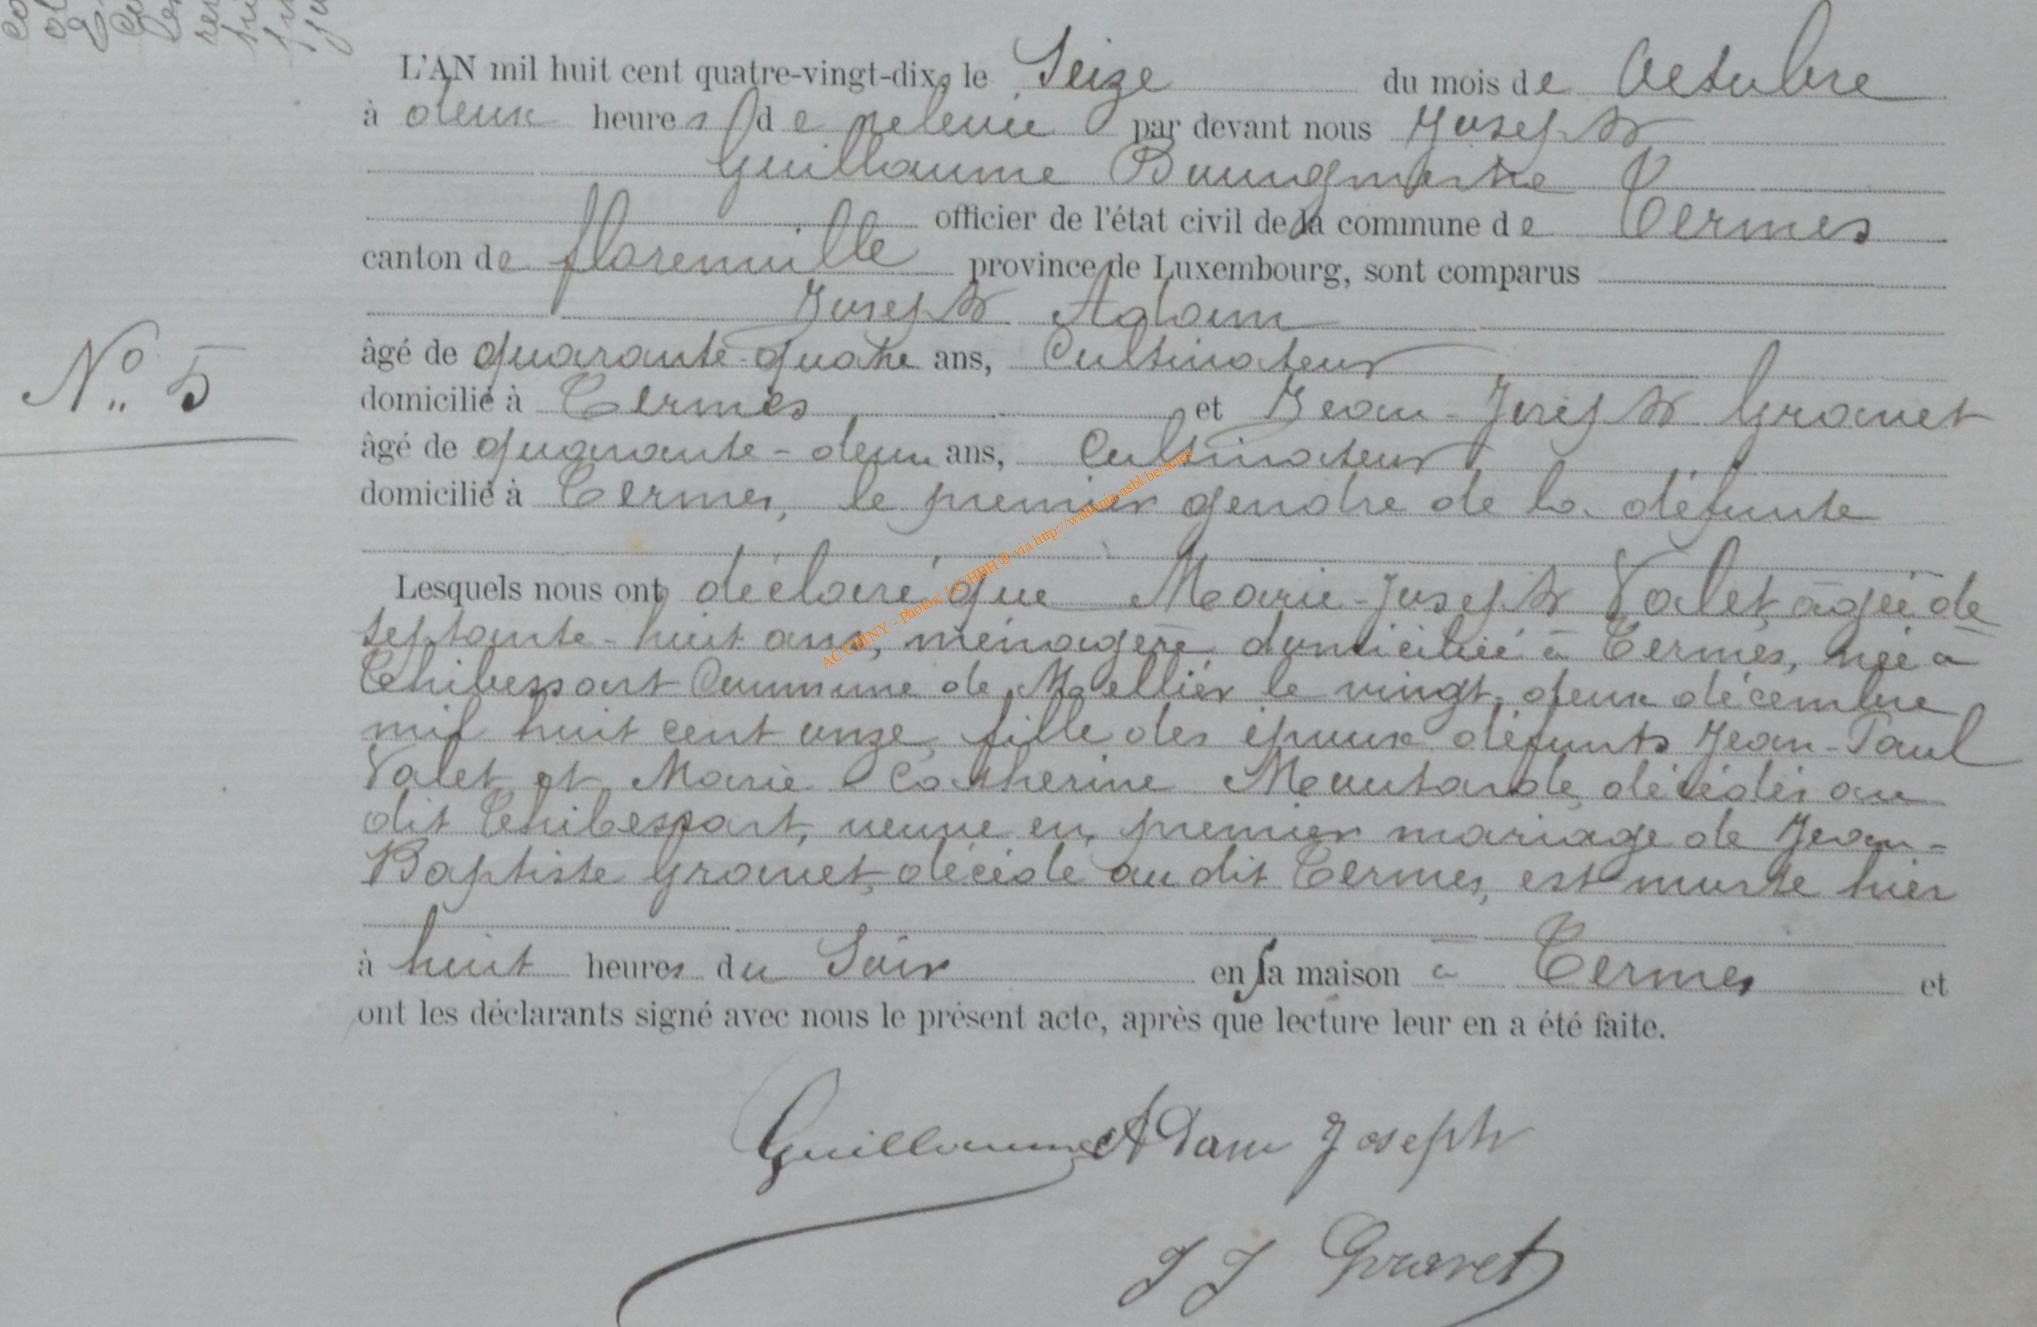 L'AN mil huit cent quatre-vingt-dix, le Seize du mois de Octobre
à deux heures de relevée par devant nous Joseph
Guillaume Bourgmestre
officier de l'état civil de la commune de Termes
canton de florenville province de Luxembourg, sont comparus
Joseph Adam
âgé de quarante-quatre ans, Cultivateur
N° 5
domicilié à Termes et Jean-Joseph Gravet
âgé de quarante-deux ans, Cultivateur
domicilié à Termes, le premier gendre de la défunte
Lesquels nous ont déclaré que Marie-Joseph Valet, âgée de
septante-huit ans, ménagère, domiciliée à Termes, née à
Thibessart Commune de Mellier le vingt-deux décembre
mil huit cent onze, fille des époux défunts Jean-Paul
Valet et Marie Catherine Moutarde, décédés au
dit Thibessart, veuve en premier mariage de Jean-
Baptiste Gravet, décédé au dit Termes, est morte hier
à huit heures du Soir en sa maison à Termes et
ont les déclarants signé avec nous le présent acte, après que lecture leur en a été faite.
Guillaume Adam Joseph
J J Gravet